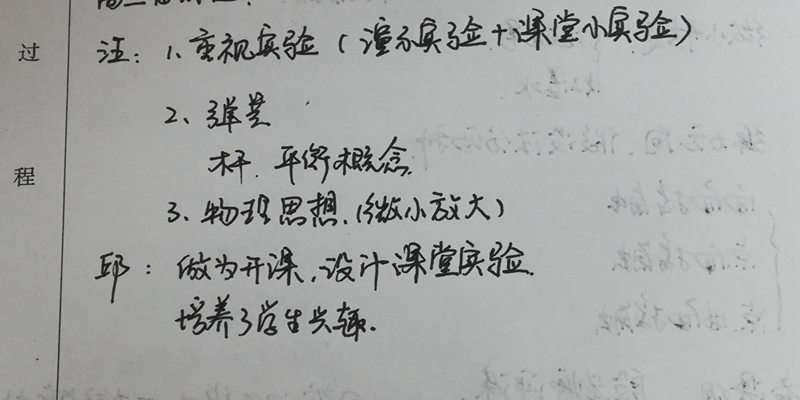 过
程
汪：1、重视实验（演示实验+课堂小实验）
2、弹簧
杆、平衡概念
3、物理思想.（微小放大）
邱：做为开课，设计课堂实验.
培养了学生兴趣.